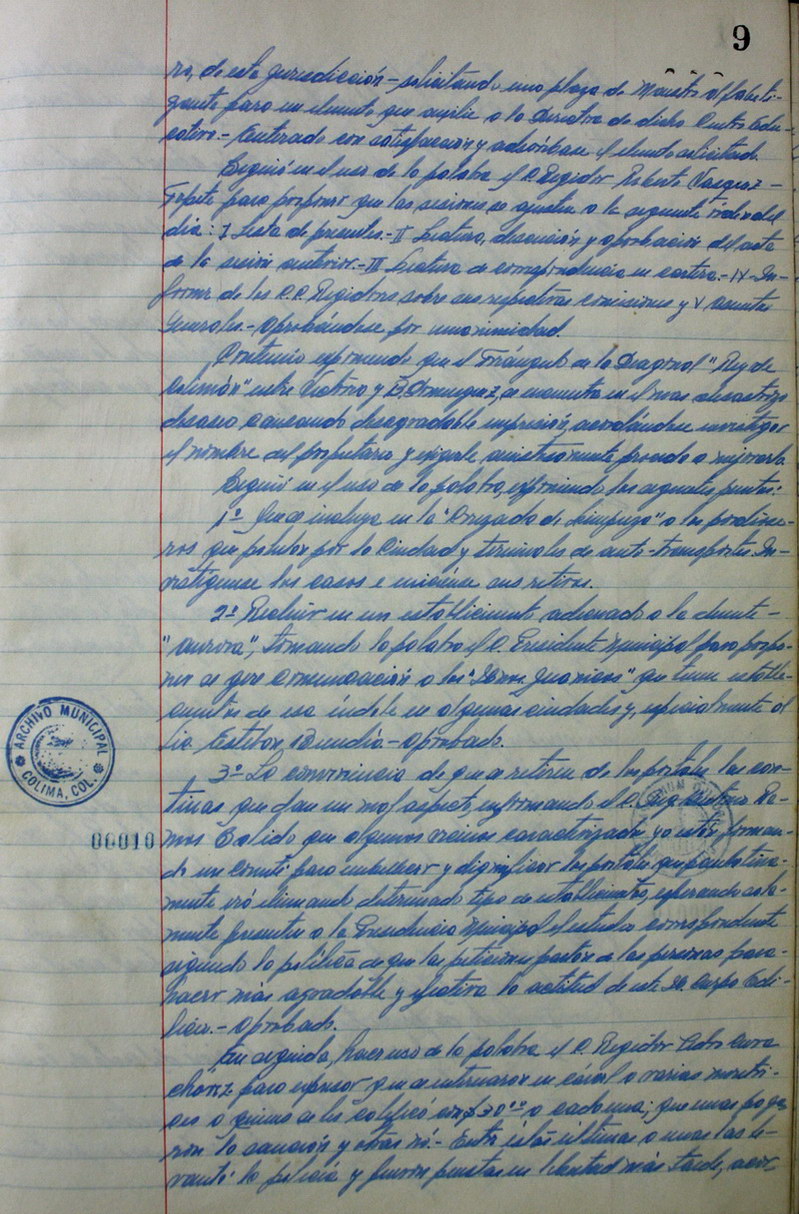 9
ro, de esta jurisdicción - solicitando una plaza de Maestro Alfabeti-
zante para un elemento que auxilie a la Directora de dicho Centro Edu-
cativo.- Enterado con satisfacción y adscríbase el elemento solicitado.
Seguió en el uso de la palabra el C. Regidor Roberto Vazquez -
Tapete para proponer que las sesiones se ajusten a la siguiente orden del
día: I Lista de presentes.- II Lectura, discusión y aprobación del acta
de la sesión anterior.- III Lectura de correspondencia en cartera.- IV- In-
forme de los C.C. Regidores sobre sus respectivas comisiones y V asuntos
Generales.- Aprobándose por unanimidad.
Continuó exponiendo que el Triángulo de la Diagonal "Rey de
Colimán" entre Victoria y B. Dominguez, se encuentra en el mas desastroso
desaseo causando desagradable impresión, acordándose investigar
el nombre del propietario y exigirle proceda a mejorarlo.
Seguió en el uso de la palabra, exponiendo los siguientes puntos:
1º Que se incluya en la "Cruzada de Limpieza" a los pordiose-
ros que pululan por la Ciudad y terminales de auto-transportes. In-
vestíguense los casos e iníciense sus retiros.
2º Recluir en un establecimiento adecuado a la demente -
"Aurora", tomando la palabra el C. Presidente Municipal para propo-
ner se gire comunicación a los que tienen estable-
cimientos de esa índole en algunas ciudades y, especialmente al
Lic. Esteban - Aprobado.
3º La conveniencia de que se retiren de los portales las cor-
tinas que dan un mal aspecto, informando el C. Ra-
mos Salido que algunos vecinos caracterizados ya están forman-
do un Comité para embellecer y dignificar los portales que paulatina-
mente irá eliminando determinado tipo de establecimientos, esperando sola-
mente presenten a la Presidencia Municipal el estudio correspondiente
siguiendo la política de que las peticiones partan de las personas para-
hacer más agradable y efectiva la actitud de este H. Cuerpo Edi-
licio.- Aprobado.
En seguida, hace uso de la palabra el C. Regidor Pedro
para expresar que se internaron en cárcel a varias meretri-
ces a quienes se les calificó con $30.00 a cada una; que unas paga-
ron la sanción y otras nó.- Entre éstas últimas a unas las le-
vantó la policía y fueron puestas en libertad más tarde,
ARCHIVO MUNICIPAL
COLIMA, COL.
00010